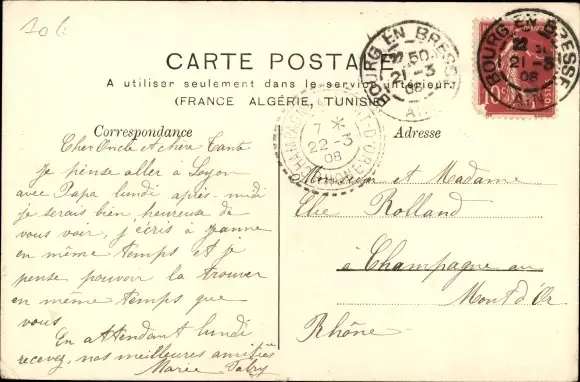 106
CARTE POSTALE
A utiliser seulement dans le service intérieur
(FRANCE ALGÉRIE, TUNISIE)
Correspondance
Adresse
BOURG EN BRESSE
21 -3
08
AIN
BOURG EN BRESSE
21 -3
08
AIN
7 *
22 -3
08
Cher Oncle et chère Tante
Je pense aller à Lyon
avec Papa lundi après-midi
je serais bien heureuse de
vous voir, j'écris à Jeanne
en même temps et je
pense pouvoir la trouver
en même temps que
vous
En attendant lundi
recevez, nos meilleures amitiés
Marie
Monsieur et Madame
Elie Rolland
à Champagne au
Mont d'Or
Rhône